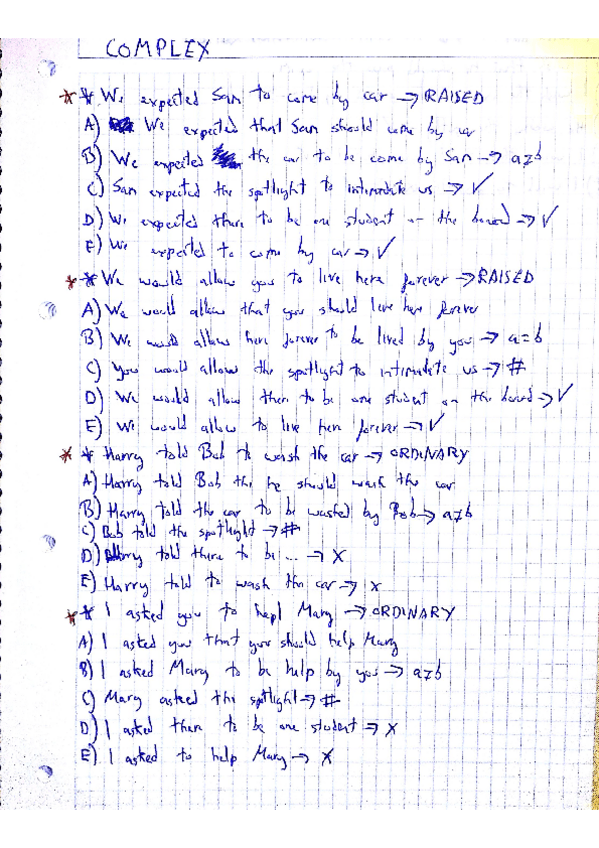 COMPLEX
* * We expected Sam to come by car → RAISED
A) We expected that Sam should come by car
B) We expected the car to be come by Sam → a≠b
C) Sam expected the spotlight to intimidate us → ✓
D) We expected there to be one student on the board → ✓
E) We expected to come by car → ✓
* * We would allow you to live here forever → RAISED
A) We would allow that you should live here forever
B) We would allow here forever to be lived by you → a=b
C) You would allow the spotlight to intimidate us → #
D) We would allow there to be one student on the board → ✓
E) We would allow to live here forever → ✓
* * Harry told Bob to wash the car → ORDINARY
A) Harry told Bob the he should wash the car
B) Harry told the car to be washed by Bob → a≠b
C) Bob told the spotlight → #
D) Harry told there to be ... → X
E) Harry told to wash the car → X
* * I asked you to hepl Mary → ORDINARY
A) I asked you that you should help Mary
B) I asked Mary to be help by you → a≠b
C) Mary asked the spotlight → #
D) I asked there to be one student → X
E) I asked to help Mary → X